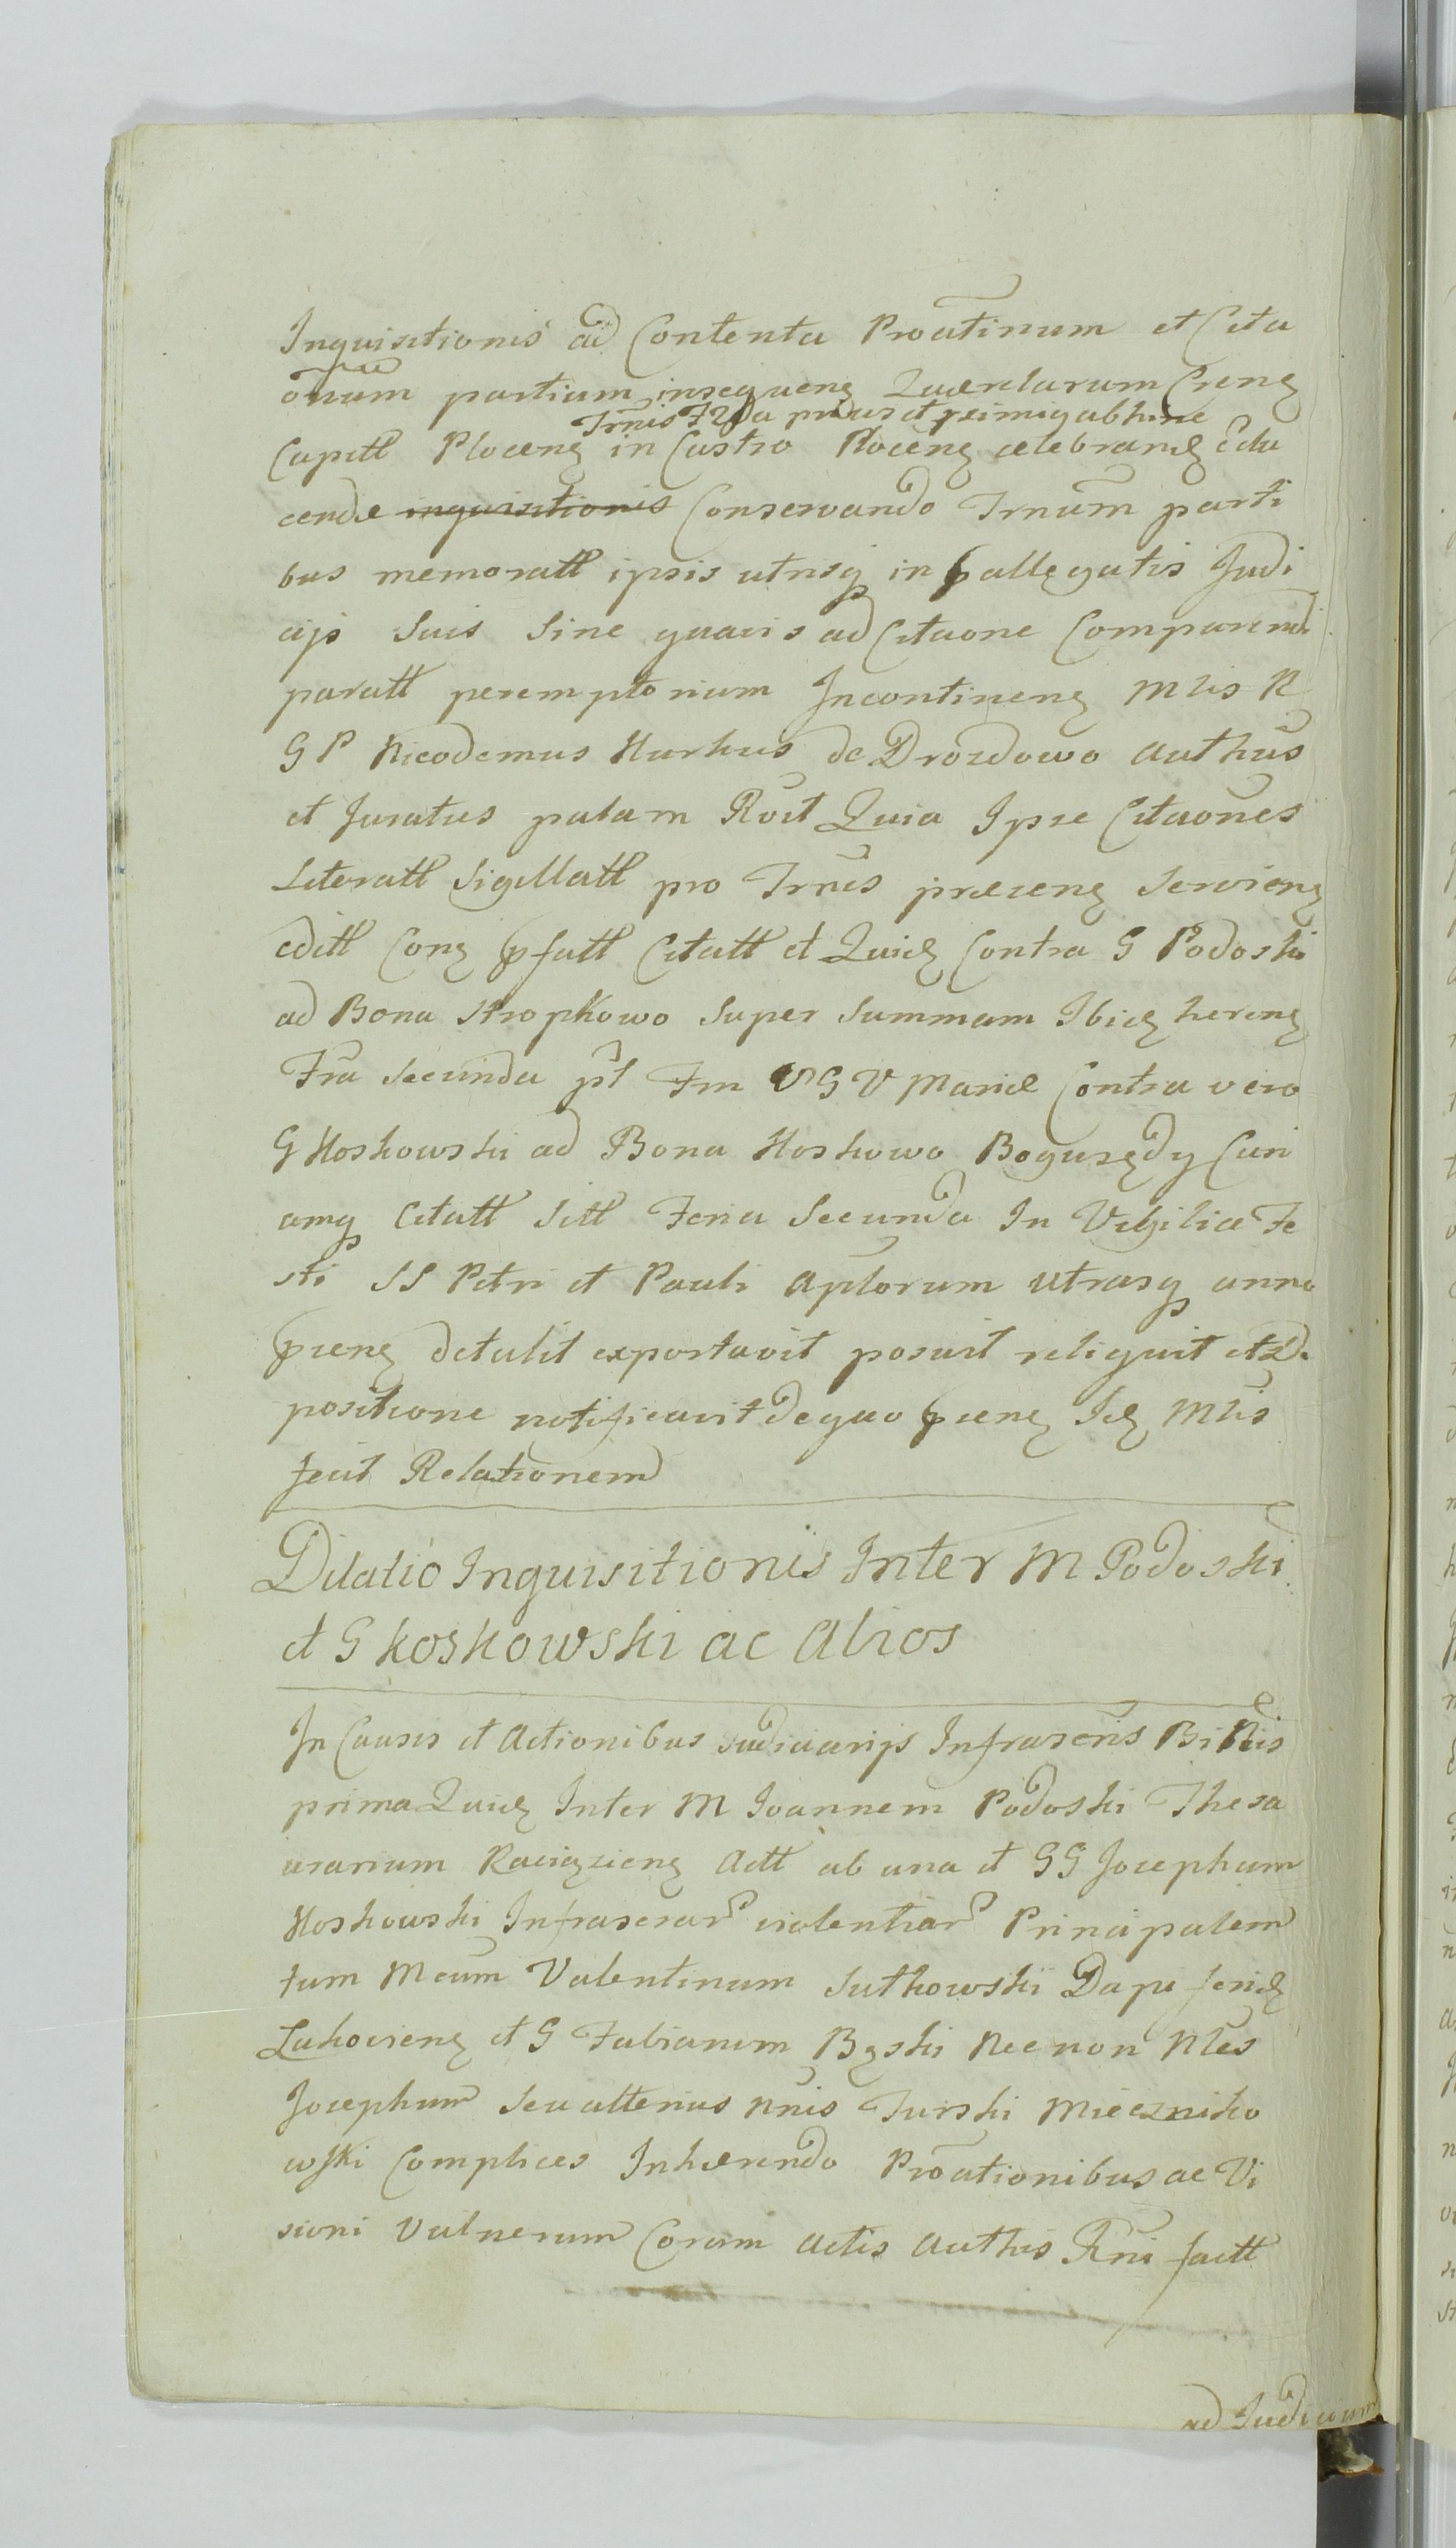 Inquisitionis ad Contenta Proātinum et Cita
onūm partium insequenꝫ Quærelarum Crenꝫ
Trnis prius et peimiq abhinc
Capitł Plocenꝫ in Castro Plocenꝫ celebrandꝫ Edu
cendæ inquisitionis Conservando Trnum parti
bus memoratł ipsis utrisqꝫ in pallegatis Judi
cijs Suis Sine quavis ad Citāone Comparendi
paratł peremptorium Incontinenꝫ Mlis R
G P Nicodemus Karkus de Drozdowo Authūs
et Juratus palam Roit Quia Ipse Citāones
Literatł Sigillatł pro Trnis præzenꝫ Servienꝫ
editł Conꝫ pfatł Citatł et Quidꝫ Contra G Podoski
ad Bona Stropkowo Super Summam Ibidꝫ herenꝫ
Fria Secunda pt Fm V G V Mariæ Contra vero
G Koskowski ad Bona Koskowo Bogurzędy Curi
amqꝫ Citatł Sitł Feria Secunda In Vigilia Fe
sti SS Petri et Pauli Aplorum utrasqꝫ anno
prenꝫ detulit exportavit posuit reliquit et De
positione notificavit de quo prenꝫ Idꝫ Mlis
fecit Relationem
Dilatio Inquisitionis Inter M Podoski
et G Koskowski ac Alios
In Causis et Actionibus Judiciarijs Infrascris Binis
prima Quidꝫ Inter M Joannem Podoski Thesa
urarium Raciązienꝫ Actł ab una et GG Josephum
Koskowski Infrascrar violentiar Principalem
tum Mcum Valentinum Sutkowski Dapiferidꝫ
Zukocienꝫ et G Fabianum Bąski Nec non Nles
Josephum Seu alterius Nnis Turski Mieczniko
wski Complices Inhærendo Proātionibus ac Vi
sioni Vulnerum Coram Actis Authis Rni factł
ad Judicium